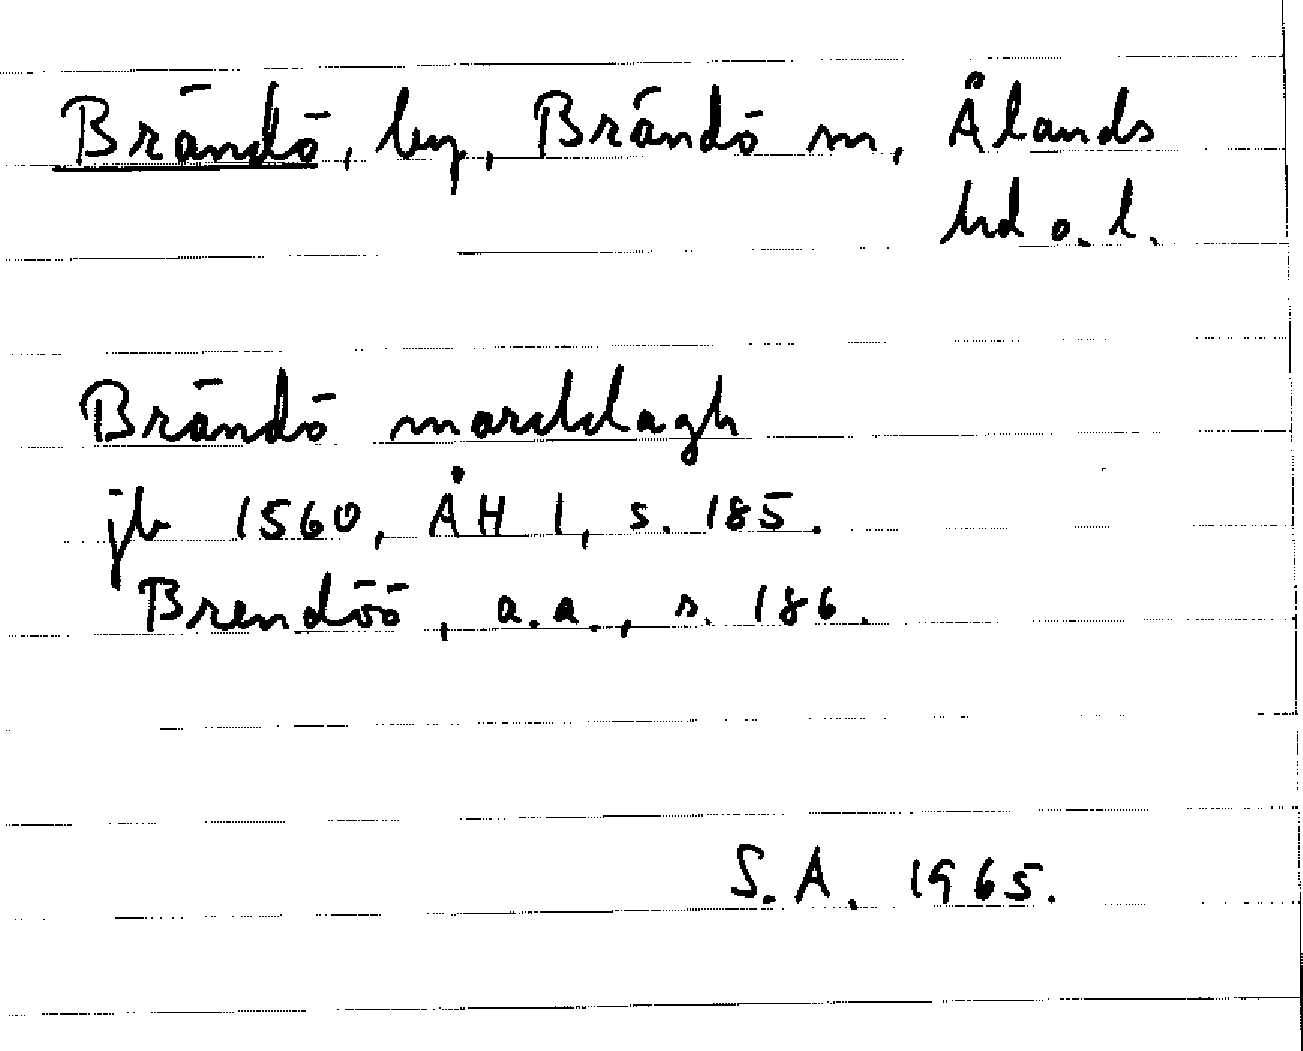 Brändö, by, Brändö sn, Ålands
hd o. l.
Brändö marcklagh
jb 1560, ÅH 1, s. 185.
Brendöö, a.a., s. 186.
S.A. 1965.